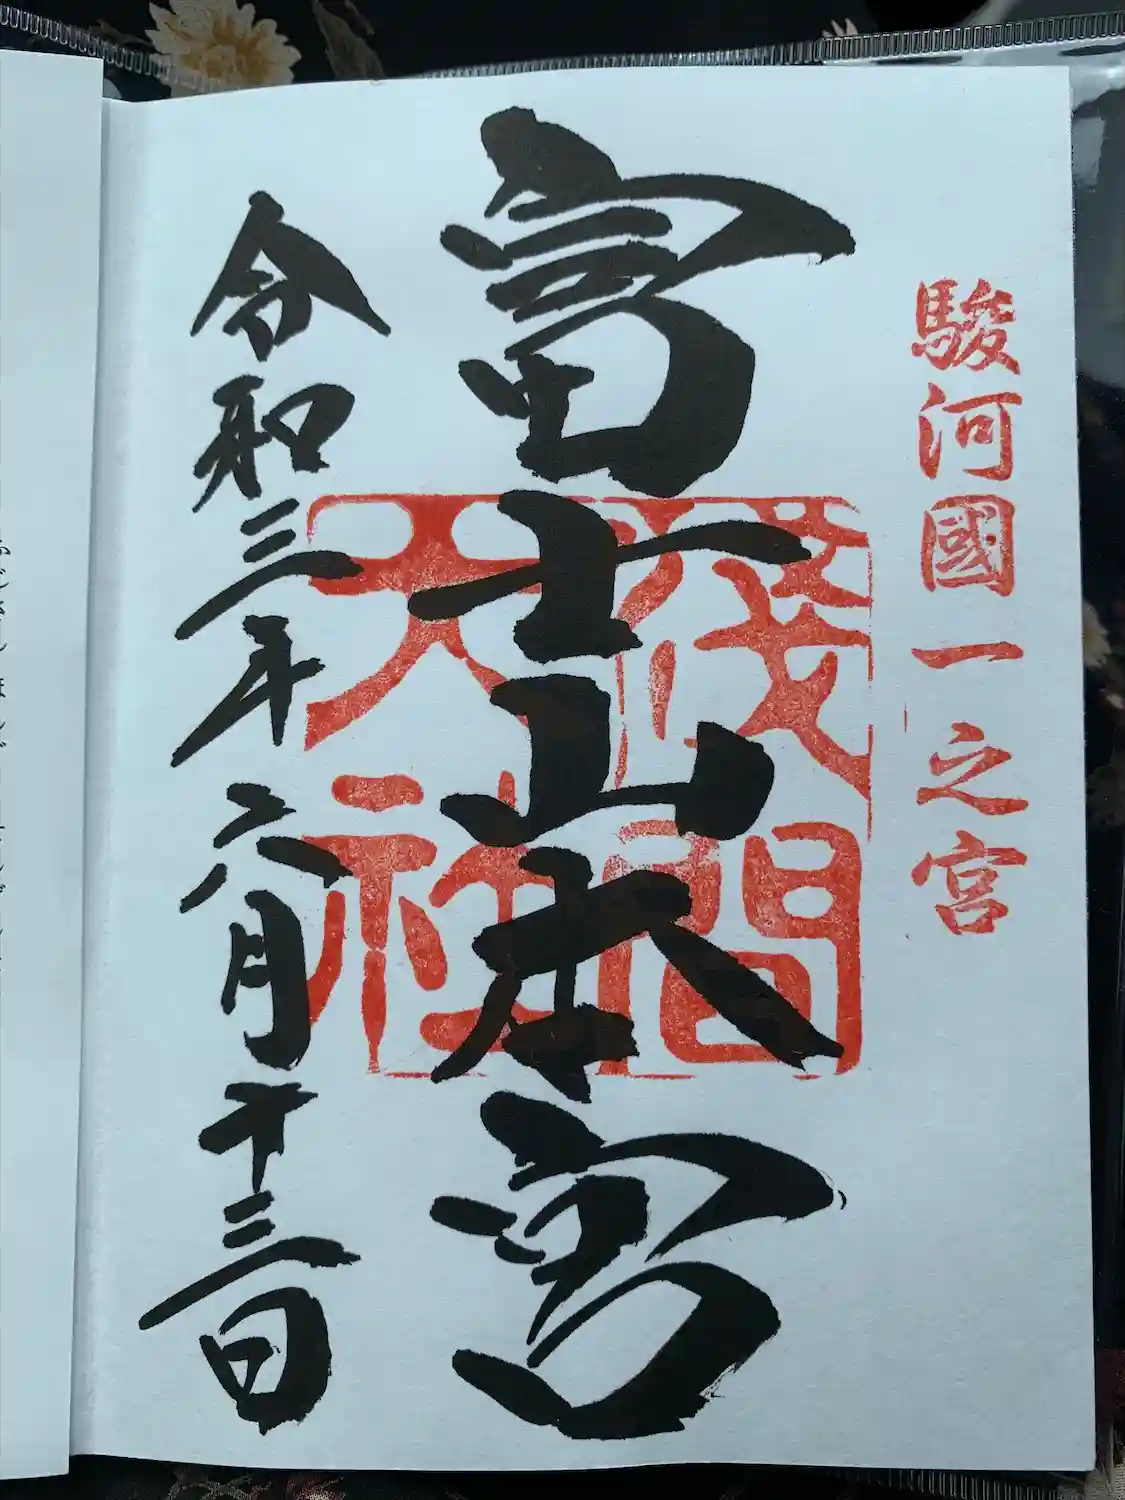 駿河國一之宮
富士山本宮
淺間大社
令和三年六月十三日